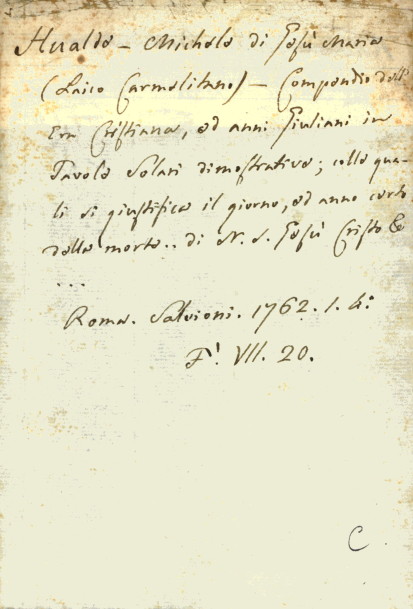 Heraldo - Michele di Gesù Maria
(Laico Carmelitano) - Compendio dell'
Era Cristiana, ed anni Giuliani in
Tavole Solari dimostrative; colle qua-
li si giustifica il giorno, ed anno certo
della morte .. di N. S. Gesù Cristo &
...
Roma. Salvioni. 1762. 1. 4:
F'. VII. 20.
C.